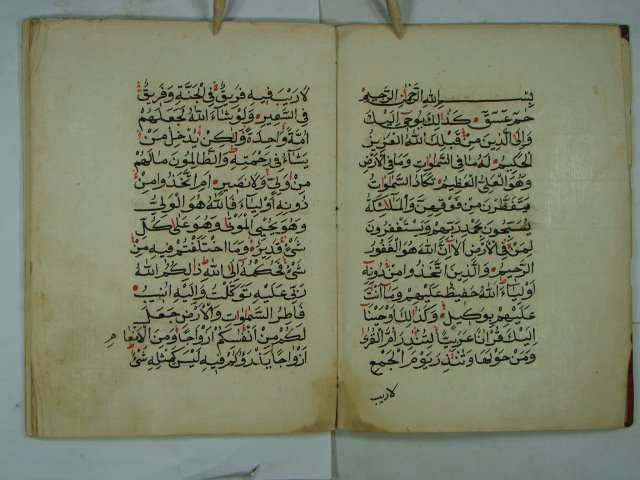 بسم الله الرحمن الرحيم
حم عسق كذلك يوحى اليك
والى الذين من قبلك الله العزيز
الحكيم له ما في السموات وما في الارض
وهو العلي العظيم تكاد السموات
يتفطرن من فوقهن والملائكة
يسبحون بحمد ربهم ويستغفرون
لمن في الارض الا ان الله هو الغفور
الرحيم والذين اتخذوا من دونه
اولياء الله حفيظ عليهم وما انت
عليهم بوكيل وكذلك اوحينا
اليك قرانا عربيا لتنذر ام القرى
ومن حولها وتنذر يوم الجمع
لاريب
لا ريب فيه فريق في الجنة وفريق
في السعير ولو شاء الله لجعلهم
امة واحدة ولكن يدخل من
يشاء في رحمته والظالمون ما لهم
من ولي ولا نصير ام اتخذوا من
دونه اولياء فالله هو الولي
وهو يحيي الموتى وهو على كل
شئ قدير وما اختلفتم فيه من
شئ فحكمه الى الله ذلكم الله
ربي عليه توكلت واليه انيب
فاطر السموات والارض جعل
لكم من انفسكم ازواجا ومن الانعام
ازواجا يذرؤكم فيه ليس كمثله شئ